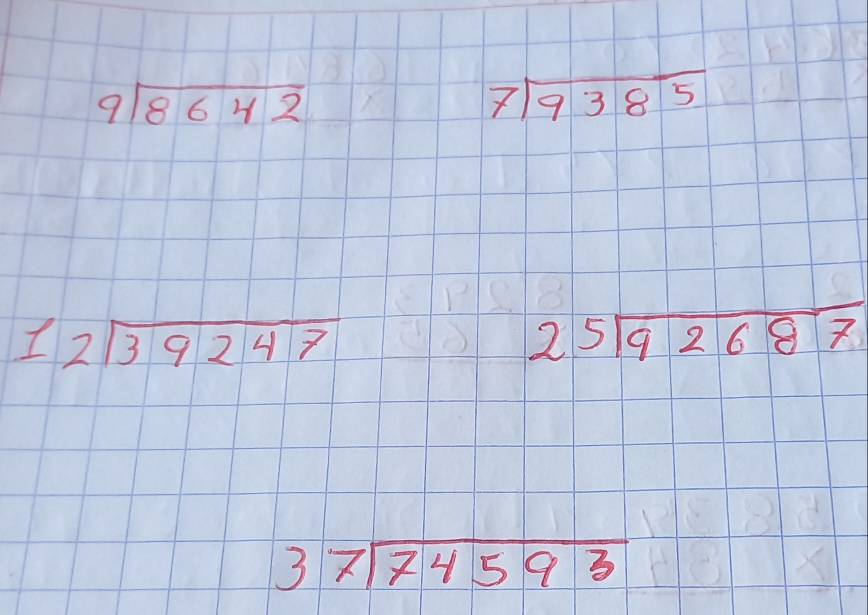 9 8642 7 9385
12 39247 25 92687
37 74593